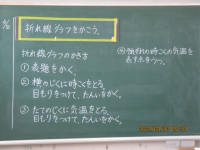 折れ線グラフをかこう。
折れ線グラフのかき方
① 表題をかく。
② 横のじくに時こくをとる。
目もりをつけて、たんいをかく。
③ たてのじくに気温をとる。
目もりをつけて、たんいをかく。
④ それぞれの時こくの気温を
表す点をうつ。